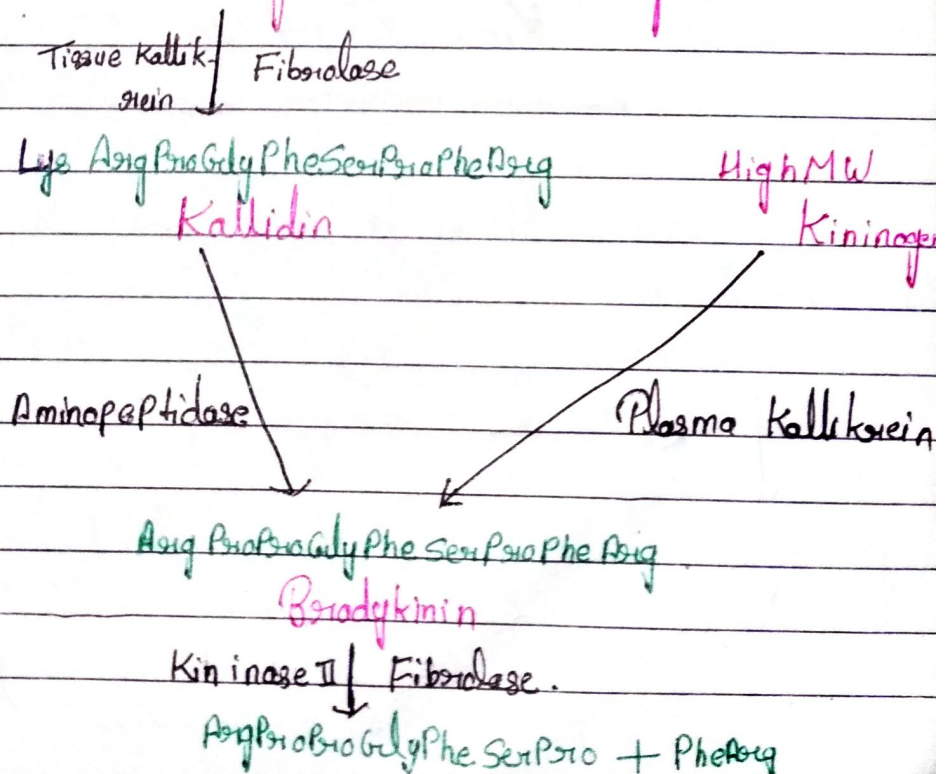 Tissue Kallik- Fibrolase
rein
Lys ArgProGlyPheSerProPheArg High MW
Kallidin Kininogen
Aminopeptidase Plasma Kallikrein
Arg ProProGlyPhe SerProPhe Arg
Bradykinin
Kininase II Fibrolase.
ArgProProGlyPhe SerPro + PheArg